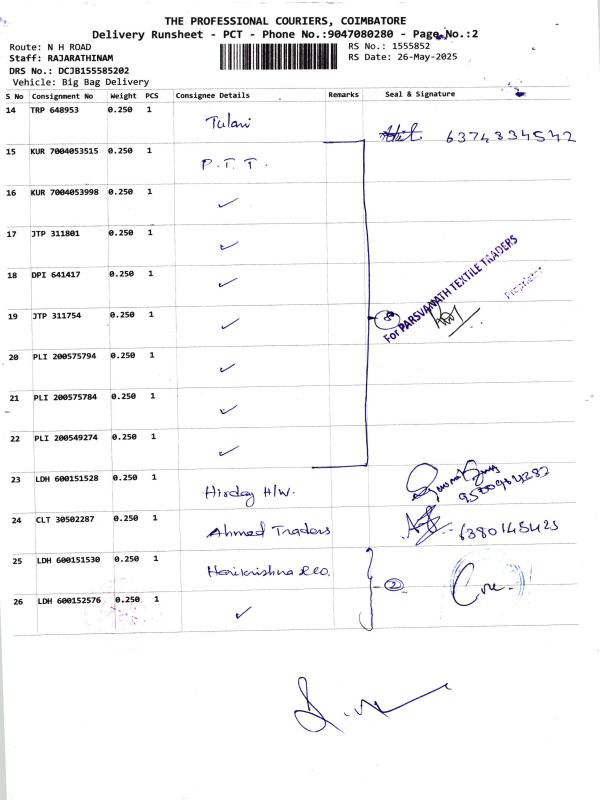 THE PROFESSIONAL COURIERS, COIMBATORE
Delivery Runsheet - PCT - Phone No.:9047080280 - Page No.:2
Route: N H ROAD
RS No.: 1555852
Staff: RAJARATHINAM
RS Date: 26-May-2025
DRS No.: DCJB155585202
Vehicle: Big Bag Delivery
S No Consignment No Weight PCS Consignee Details Remarks Seal & Signature
14 TRP 648953 0.250 1 Tulasi 6374334542
15 KUR 7004053515 0.250 1 P.T.T.
16 KUR 7004053998 0.250 1 ✓
17 JTP 311801 0.250 1 ✓
18 DPI 641417 0.250 1 ✓
19 JTP 311754 0.250 1 ✓ 8
For PARSVANATH TEXTILE TRADERS
Proprietor
20 PLI 200575794 0.250 1 ✓
21 PLI 200575784 0.250 1 ✓
22 PLI 200549274 0.250 1 ✓
23 LDH 600151528 0.250 1 Hirday H/W.
24 CLT 30502287 0.250 1 Ahmed Traders 6380145425
25 LDH 600151530 0.250 1 Harikrishna & co. 2
26 LDH 600152576 0.250 1 ✓